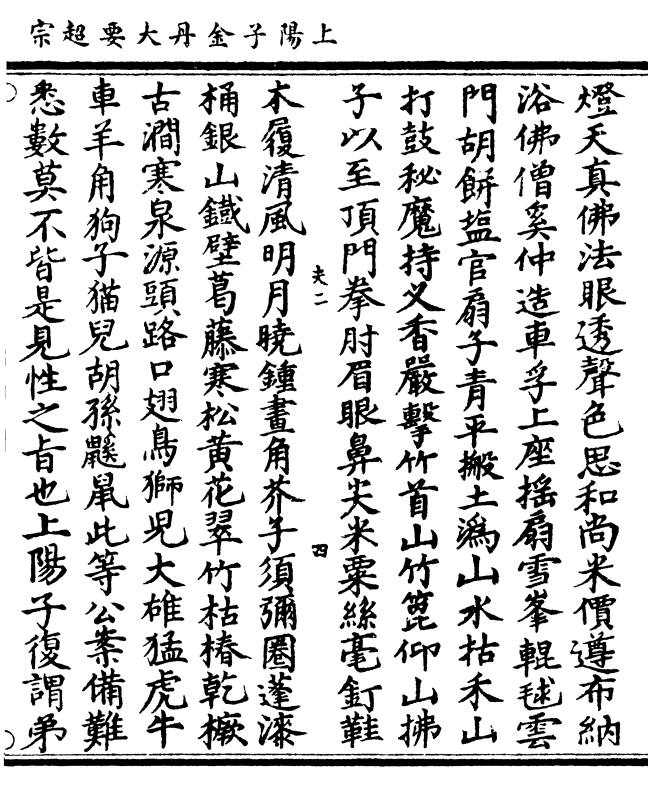 上陽子金丹大要超宗
燈天真佛法眼透聲色思和尚米價遵布納
浴佛僧奚仲造車孚上座搖扇雪峯輥毬雲
門胡餅塩官扇子青平搬土潙山水牯禾山
打鼓秘魔持义香嚴擊竹首山竹篦仰山拂
子以至頂門拳肘眉眼鼻尖米粟絲毫釘鞋
夫二
四
木履清風明月曉鍾畫角芥子須彌圈蓬漆
桶銀山鐵壁葛藤寒松黄花翠竹枯樁乾橛
古澗寒泉源頭路口翅鳥獅児大雄猛虎牛
車羊角狗子猫兒胡孫鼷鼠此等公案備難
悉數莫不皆是見性之旨也上陽子復謂弟